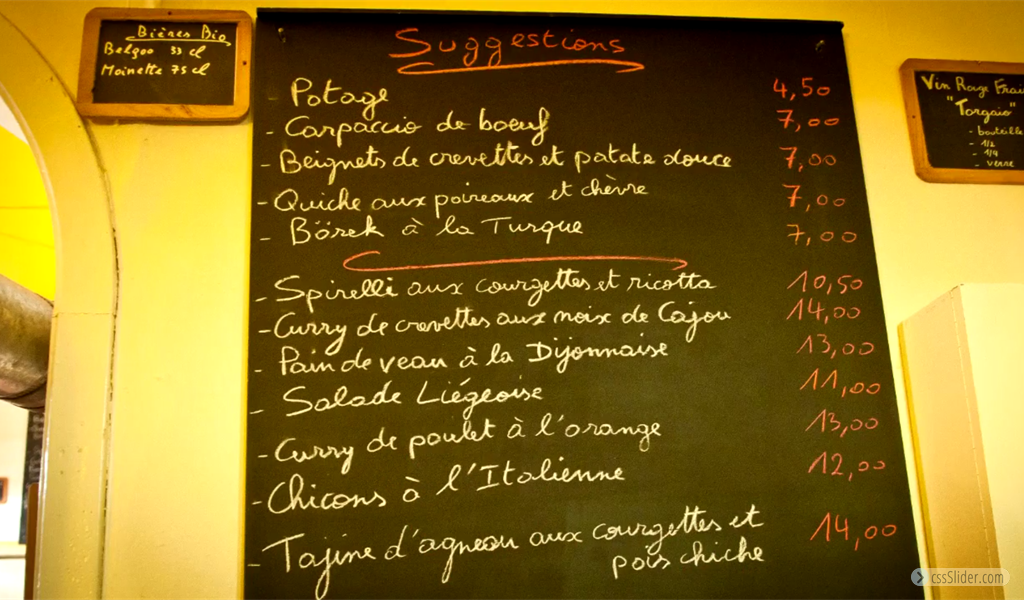 Bières Bio
Belgoo 33 cl
Moinette 75 cl
Suggestions
Potage 4,50
- Carpaccio de boeuf 7,00
- Beignets de crevettes et patate douce 7,00
- Quiche aux poireaux et chèvre 7,00
- Börek à la Turque 7,00
- Spirelli aux courgettes et ricotta 10,50
- Curry de crevettes aux noix de Cajou 14,00
- Pain de veau à la Dijonnaise 13,00
- Salade Liégeoise 11,00
- Curry de poulet à l'orange 13,00
- Chicons à l'Italienne 12,00
- Tajine d'agneau aux courgettes et 14,00
pois chiche
Vin Rouge Frai
"Torgaio"
- bouteille
- 1/2
- 1/4
- verre
cssSlider.com